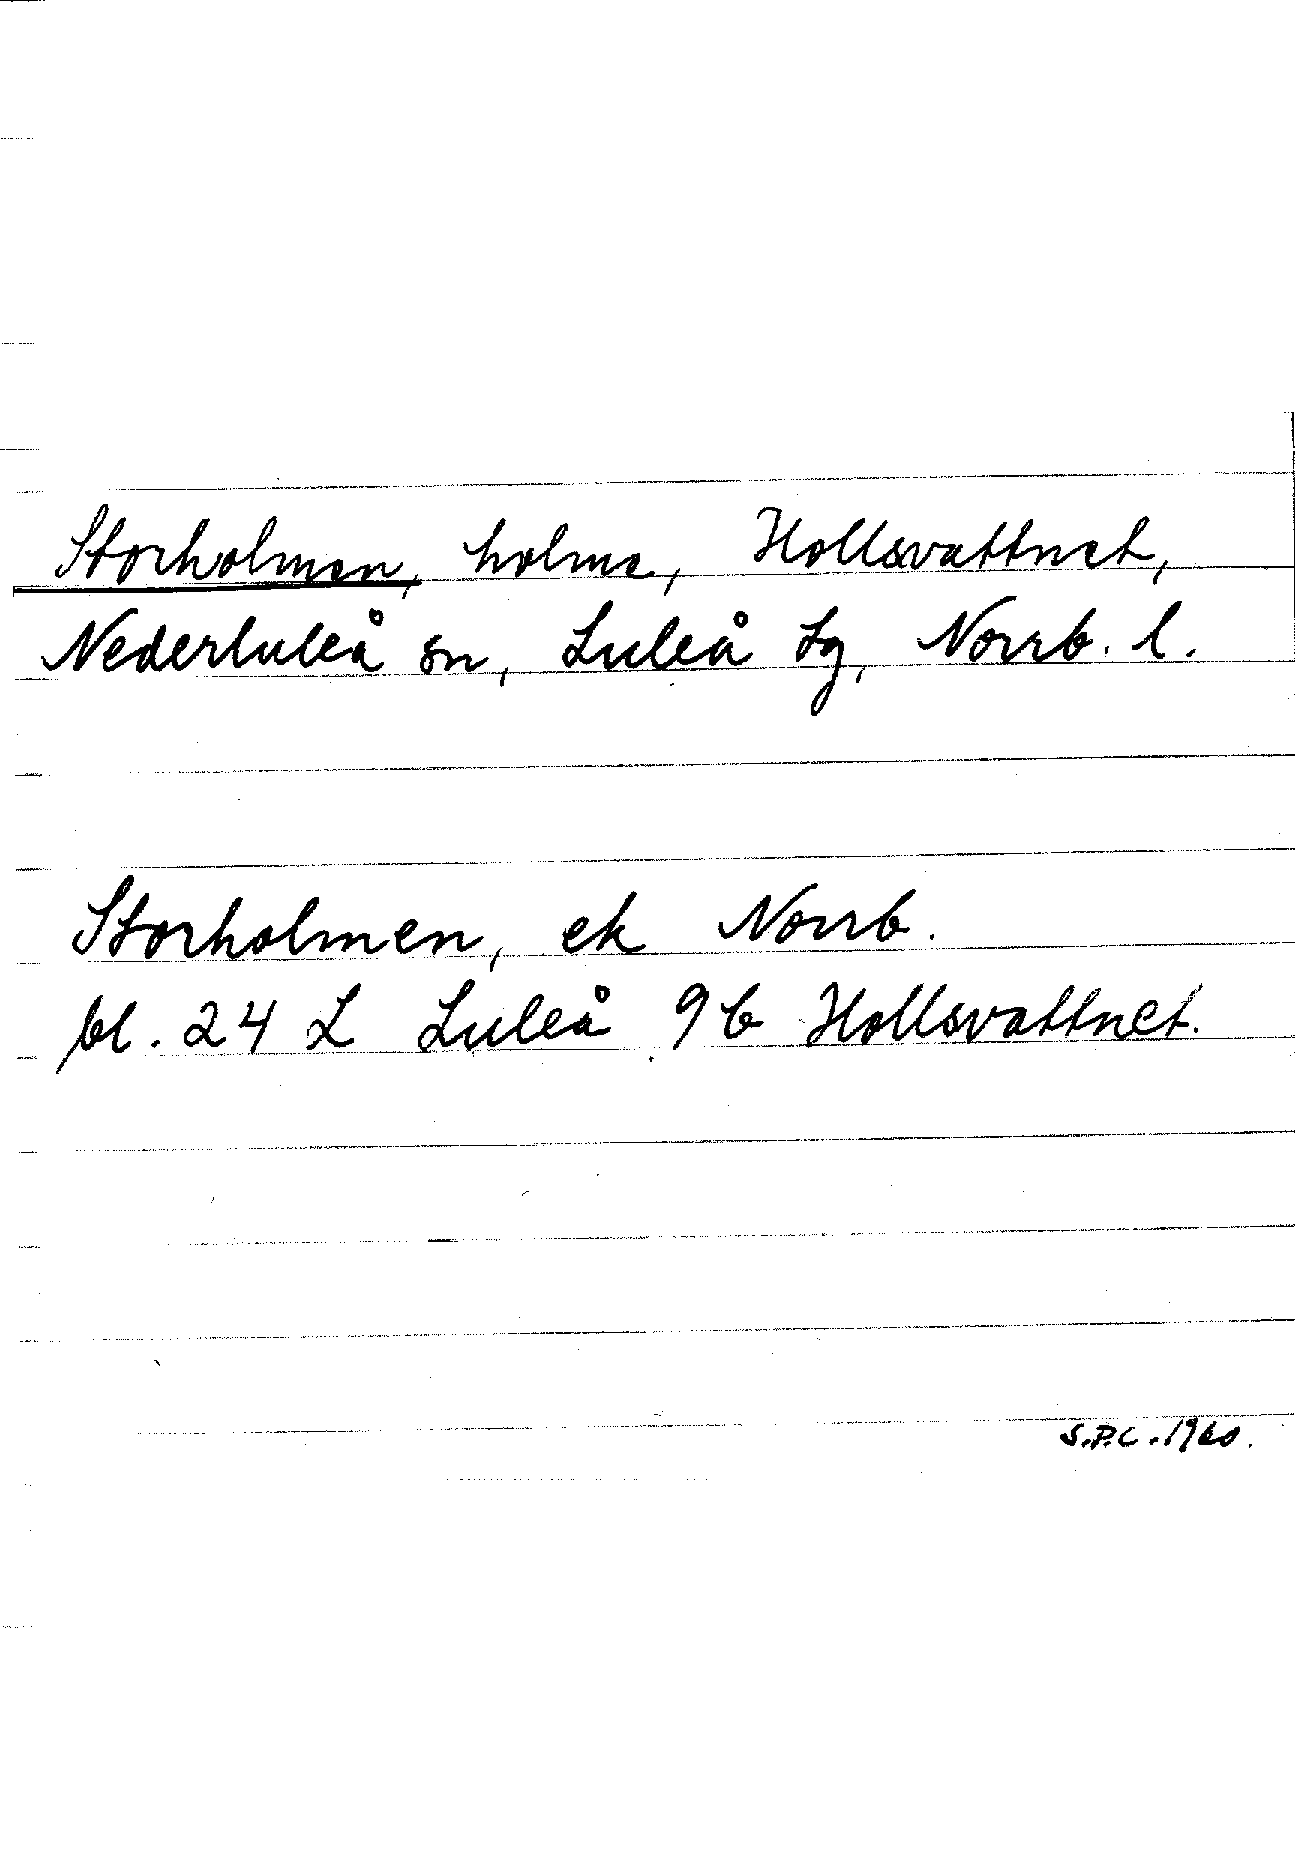 Storholmen, holme, Hollsvattnet,
Nederluleå sn, Luleå tg, Norrb. l.
Storholmen, ek Norrb.
bl. 24 L Luleå 9b Hollsvattnet.
S.P.C. 1960.